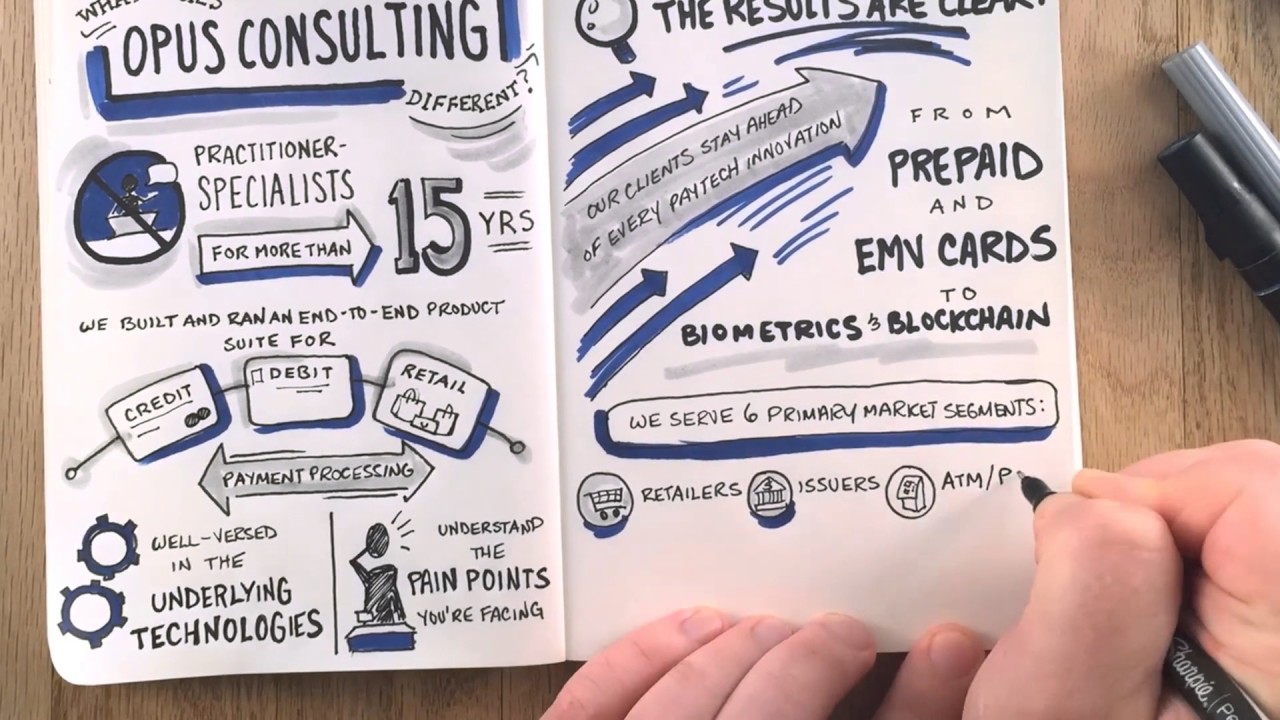 OPUS CONSULTING
DIFFERENT?
PRACTITIONER-
SPECIALISTS
FOR MORE THAN
15 YRS
WE BUILT AND RAN AN END-TO-END PRODUCT
SUITE FOR
CREDIT
DEBIT
RETAIL
PAYMENT PROCESSING
WELL-VERSED
IN THE
UNDERLYING
TECHNOLOGIES
UNDERSTAND
THE
PAIN POINTS
YOU'RE FACING
THE RESULTS ARE CLEAR!
OUR CLIENTS STAY AHEAD
OF EVERY PAYTECH INNOVATION
FROM
PREPAID
AND
EMV CARDS
TO
BIOMETRICS & BLOCKCHAIN
WE SERVE 6 PRIMARY MARKET SEGMENTS:
RETAILERS
ISSUERS
ATM/P
Sharpie